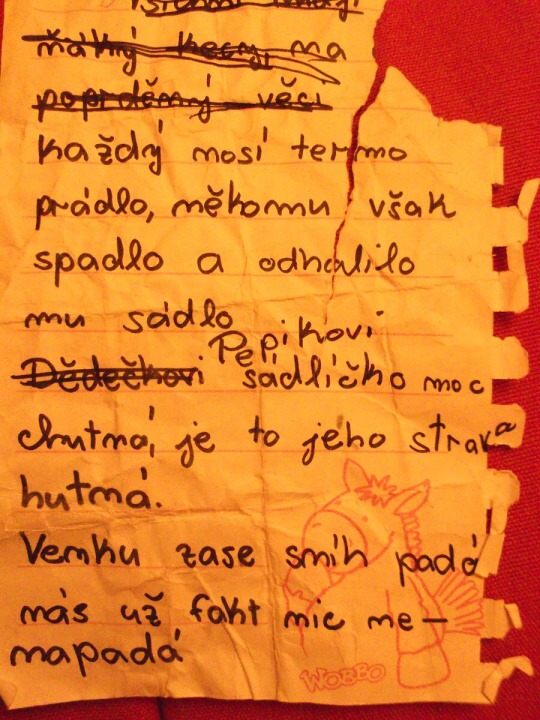 ňáký kecy na
poprděný věci
každý nosí termo
prádlo, někomu však
spadlo a odhalilo
mu sádlo
Pepikovi
Dědečkovi sadlíčko moc
chutná, je to jeho strava
hutná.
Venku zase sníh padá
nás už fakt nic ne-
napadá
WOBBO